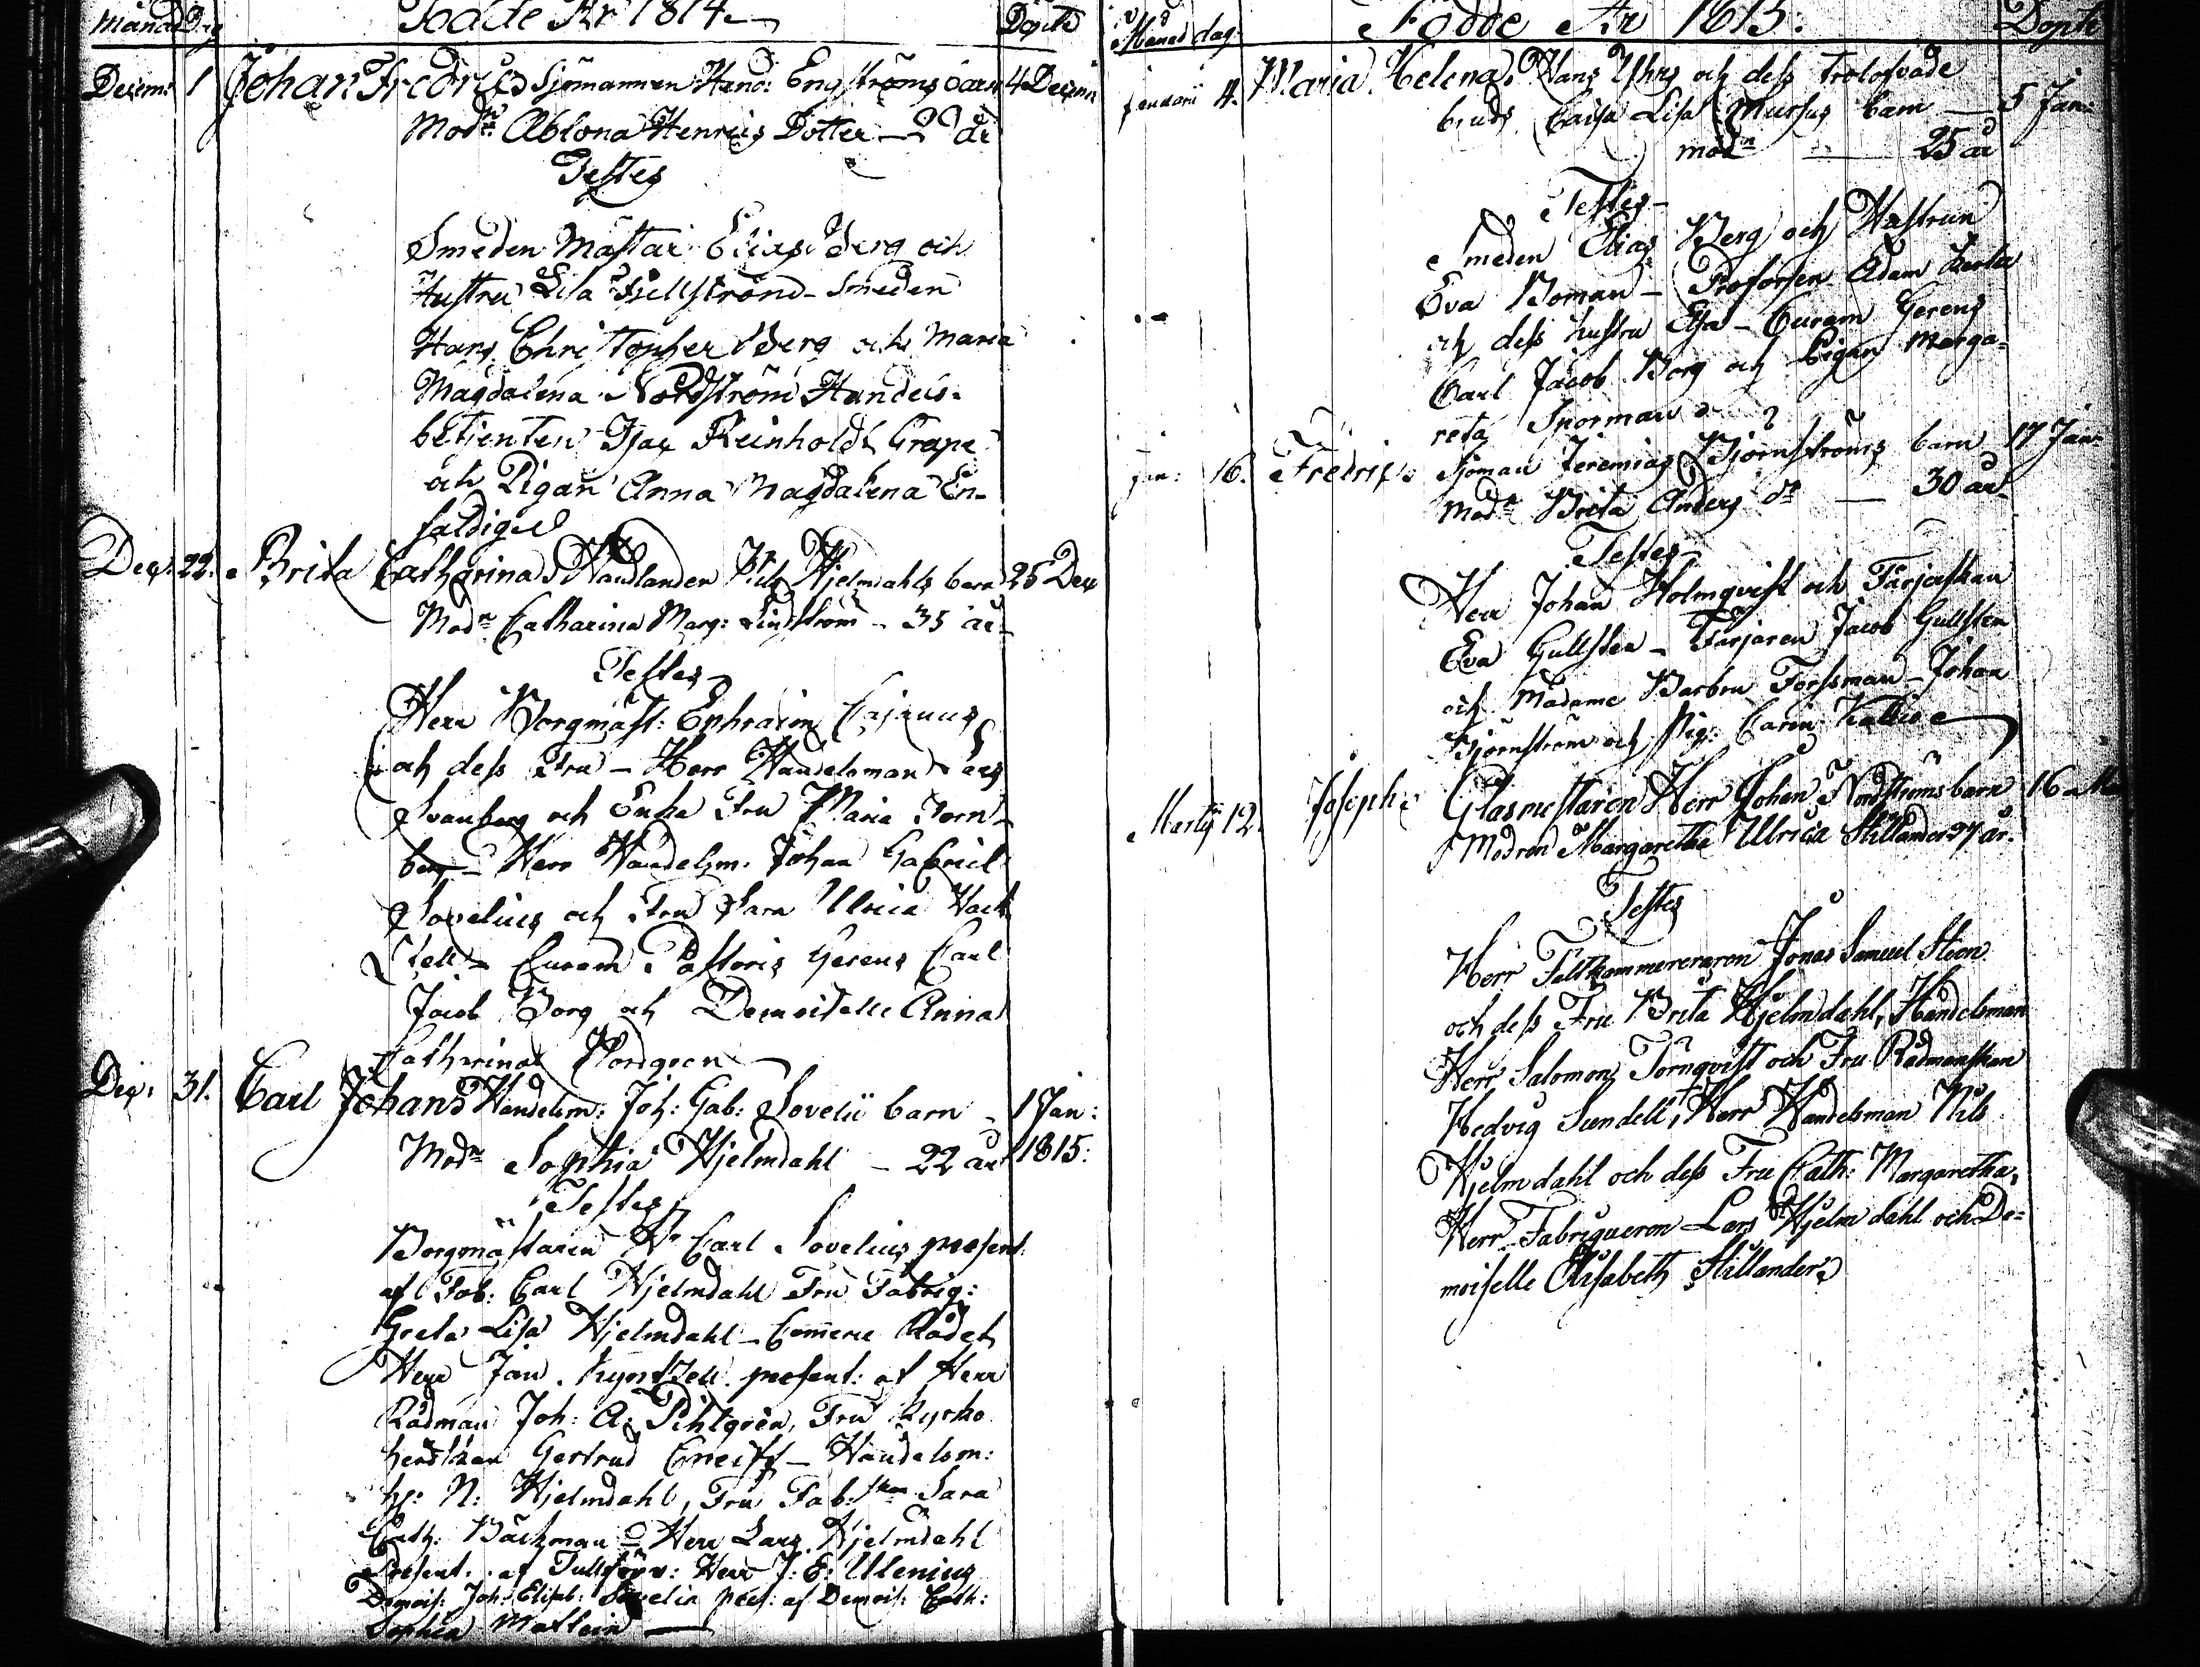 Månad Dag Födde År 1814 Döpte
Decem: 1 Johan Fredric Sjömannen Henr: Engströms barn 4 Decem
Modn Ablona Henrics Dotter
Testes
Smeden Mästar Elias Berg och
Hustru Lisa Fjellström - Smeden
Hans Christopher Berg och Maria
Magdalena Nordström Handels-
betjenten Isac Reinhold Grape
och Pigan Anna Magdalena En-
faldig
Dec: 22. Brita Catharina Handlanden Nils Hjelmdahls barn 25 Dec
Modn Catharina Marg: Lindström - 35 år
Testes
Herr Borgmäst: Ephraim Cajanus
och dess Fru - Herr Handelsman
Svanberg och Enka Fru Maria Forn-
berg - Herr Handelsm. Johan Gabriel
Sovelius och Fru Sara Ulrica
Curam Pastoris Gerens Carl
Jacob Borg och Demoiselle Anna
Catharina Nordgren
Dec: 31. Carl Johan Handelsm: Joh: Gab: Sovelii barn - 1 Jan:
Modn Sophia Hjelmdahl - 22 år 1815:
Testes
Borgmästaren Hr Carl Sovelius present:
af Fab: Carl Hjelmdahl Fru Fabriq:
Greta Lisa Hjelmdahl - Commerce Rådet
Herr Jan present: af Herr
Rådman Joh: A: Pihlgren, Fru Kyrko
herdskan Gertrud - Handelsm:
Hr: N: Hjelmdahl, Fru Fab:skan Sara
Cath: Bäckman - Herr Lars Hjelmdahl
Present. af Tullförv: Herr J: E: Ulenius
Demois: Joh: Elisab: Sovelia pres: af Demois: Cath:
Sophia Mathein
Månad dag. Födde År 1815. Döpte
Januarii 4. Maria Helena, Hans Uhrs och dess trolofvade
bruds Caisa Lisa Mursus barn 5 Jan:
modn 25 år
Testes
Smeden Elias Berg och Hustrun
Eva Boman - Profossen Adam
och dess hustru Elsa - Curam Gerens
Carl Jacob Borg och Pigan Marga-
reta Snorman
Jan: 16. Fredric Sjöman Jeremias Björnströms barn 17 Jan:
Modn Brita Anders dr 30 år
Testes
Herr Johan Holmqvist och Färjaskan
Eva Gullsten - Färjaren Jacob Gullsten
och Madame Barbru Forssman - Johan
Björnström och Pig: Carin Kallio
Martij 12. Joseph Glasmestaren Herr Johan Nordströms barn 16
Modren Margaretha Ulrica Stillander 37 år.
Testes
Herr Feltkammereraren Jonas Samuel Steen
och dess Fru Brita Hjelmdahl, Handelsman
Herr Salomon Törnqvist och Fru Rådmanskan
Hedvig Sundell, Herr Handelsman Nils
Hjelmdahl och dess Fru Cath: Margaretha,
Herr Fabriqueren Lars Hjelmdahl och De-
moiselle Elisabeth Stillander